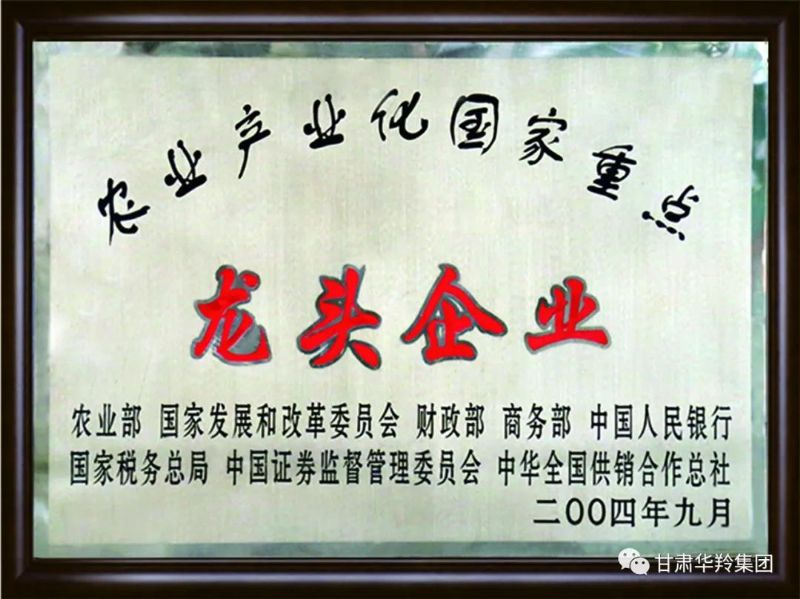 农业产业化国家重点
龙头企业
农业部 国家发展和改革委员会 财政部 商务部 中国人民银行
国家税务总局 中国证券监督管理委员会 中华全国供销合作总社
二〇〇四年九月
甘肃华羚集团